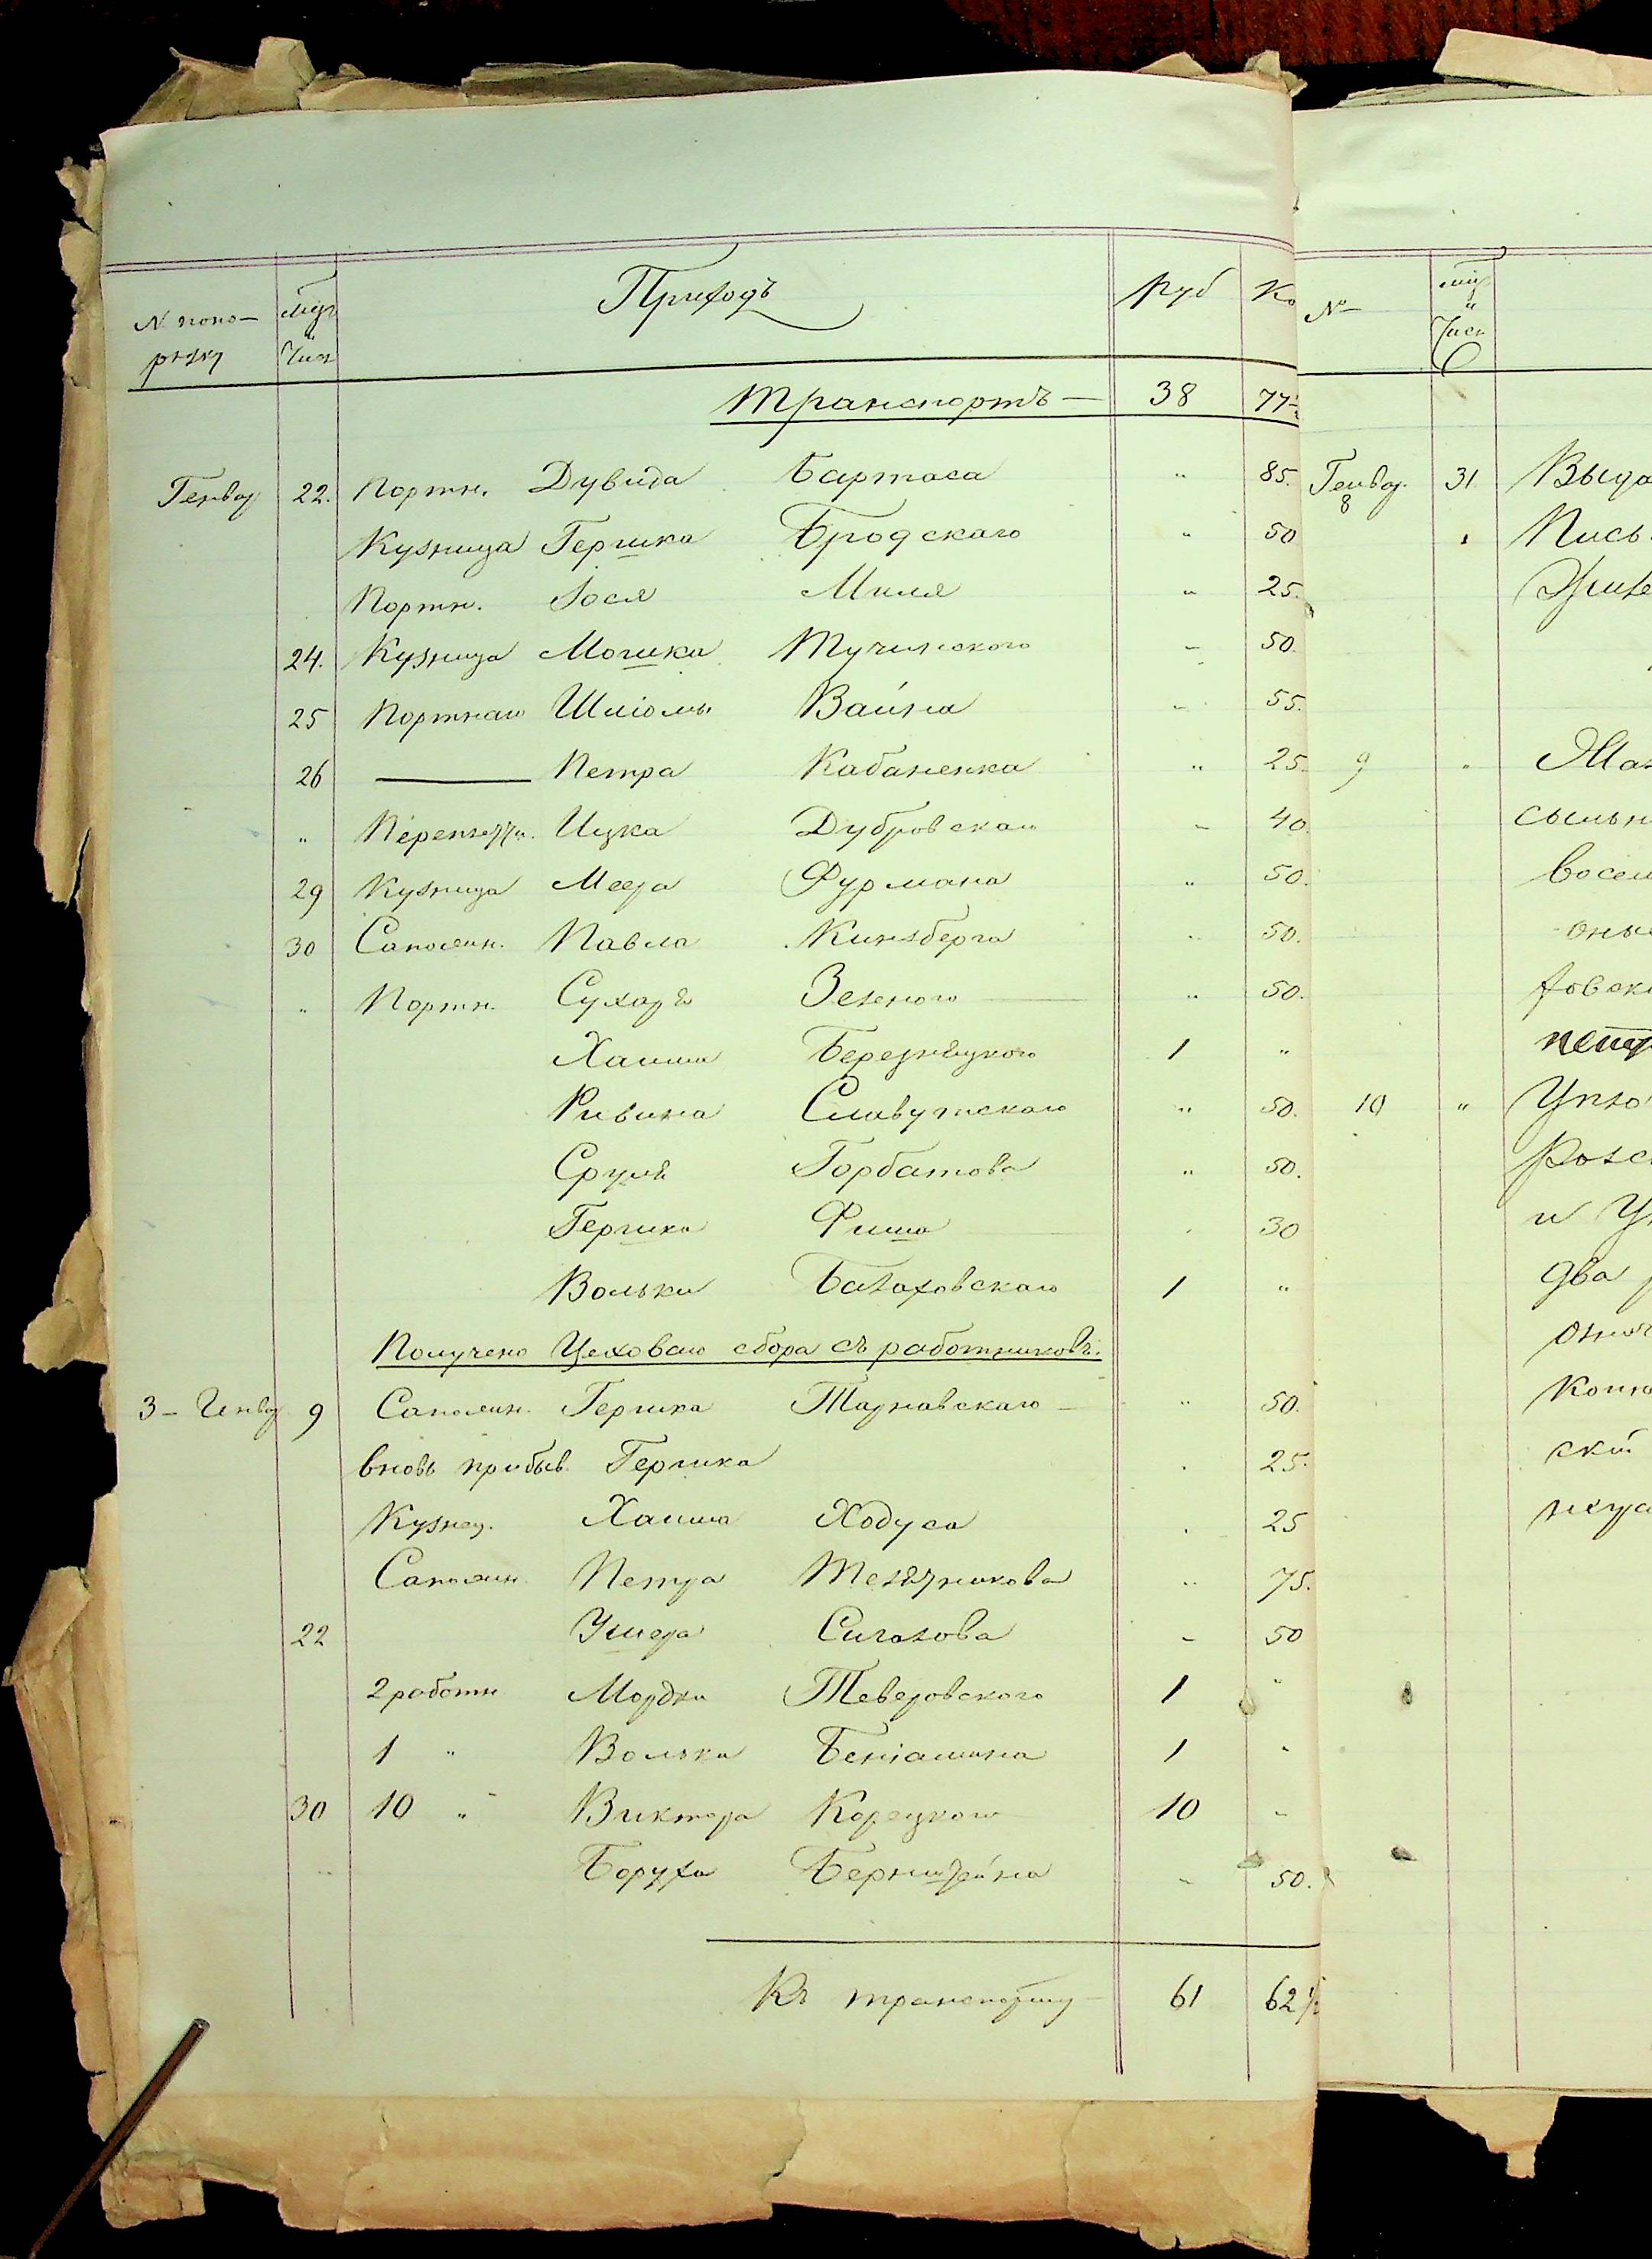 N. поло-
рядку
Приходъ
Руб
Ко
Транспортъ — 38 77
Генвар 22. Портн. Дувида Бартаса " 85.
Кузнеца Гершка Бродскаго " 50
Портн. Іося Миля " 25.
24. Кузнеца Мошка Тучинского " 50.
25 Портнаго Шліомы Вайна " 55.
26 —— Петра Кабаненка " 25.
" Ицка Дубровскаго " 40.
29 Кузнеца Меера Фурмана " 50.
30 Сапожн. Павла Кинзберга " 50.
" Портн. Сухаръ Зеленого — " 50.
Хаима Березнецкого 1 "
Рувина Славутскаго " 50.
Сруля Горбатова " 50.
Гершка Фиша " 30
Вольки Балаховскаго 1 "
Получено Цеховаго сбора съ работниковъ.
3 - Генвар 9 Сапожн. Гершка Тарнавскаго — " 50.
вновь прибыв. Гершка " 25.
Кузнец. Хаима Ходуса " 25
Сапожн. Петра " 75.
22 Умера " 50
2 работн Мордка Теверовского 1 "
1 " Волька Беніамина 1 "
30 10 " Виктора Корецкого 10 "
" Боруха Бернштейна " 50.
Къ транспорту — 61 62 ½
№
Генвар. 31
8
Пись
9 "
сыльн
восем
10 "
два
скій